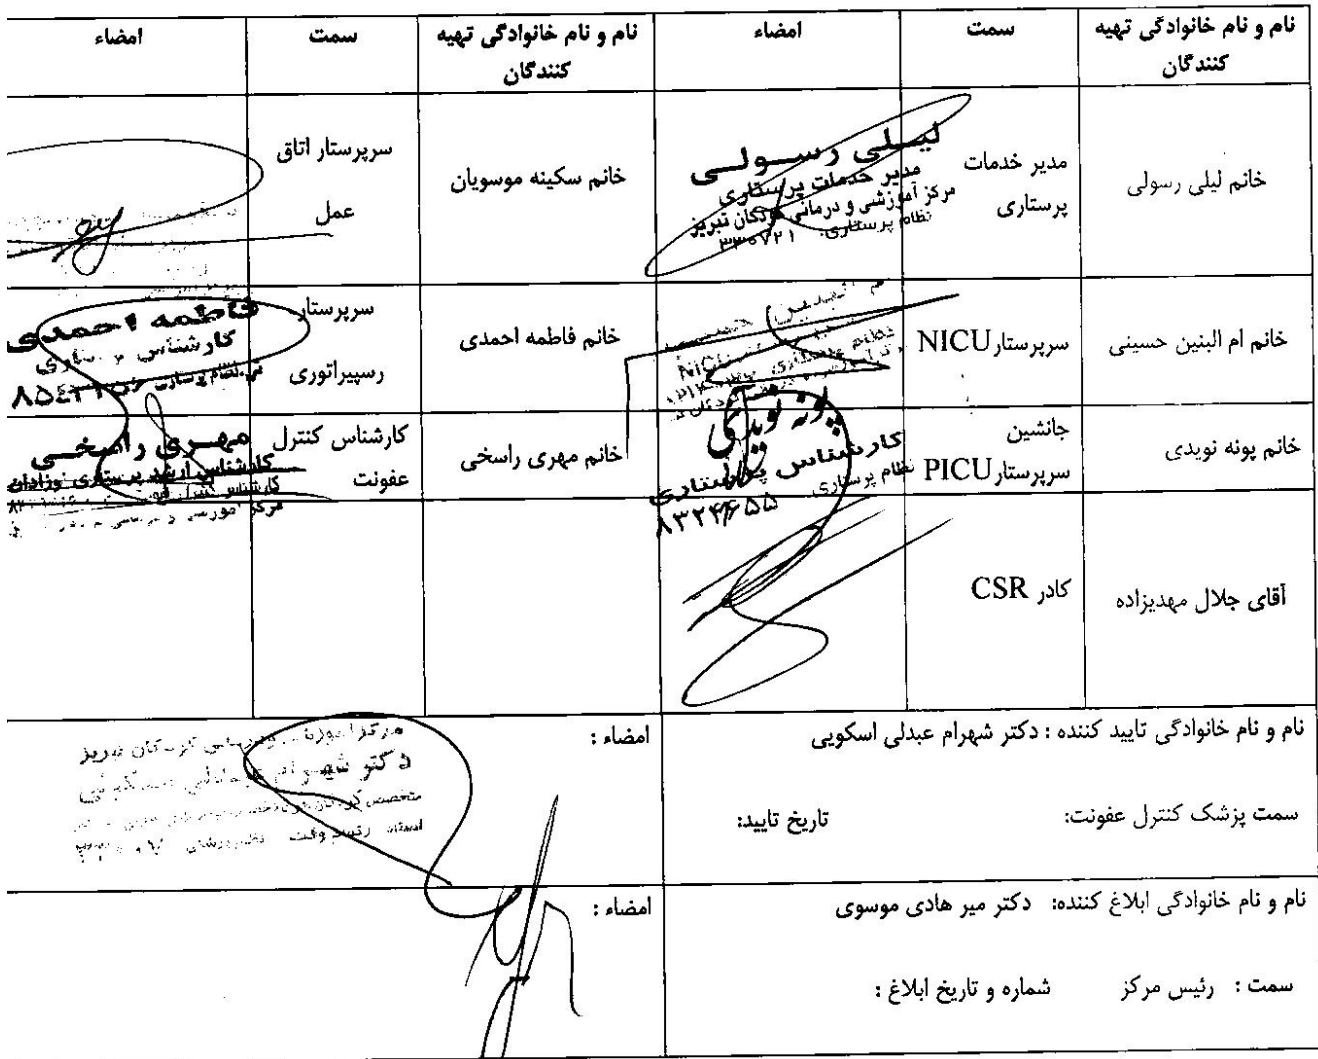 نام و نام خانوادگی تهیه کنندگان
سمت
امضاء
نام و نام خانوادگی تهیه کنندگان
سمت
امضاء
خانم لیلی رسولی
مدیر خدمات پرستاری
لیلی رسولی
مدیر خدمات پرستاری
مرکز آموزشی و درمانی کودکان تبریز
نظام پرستاری: ۳۳۰۷۲۱
خانم سکینه موسویان
سرپرستار اتاق عمل
خانم ام البنین حسینی
سرپرستار NICU
NICU
خانم فاطمه احمدی
سرپرستار رسپیراتوری
فاطمه احمدی
کارشناس
خانم پونه نویدی
جانشین سرپرستار PICU
پونه نویدی
کارشناس پرستاری
نظام پرستاری
خانم مهری راسخی
کارشناس کنترل عفونت
مهری راسخی
کارشناس ارشد پرستاری نوزادان
کارشناس کنترل
مرکز آموزشی و
آقای جلال مهدیزاده
کادر CSR
نام و نام خانوادگی تایید کننده : دکتر شهرام عبدلی اسکویی
امضاء :
سمت پزشک کنترل عفونت:
تاریخ تایید:
کودکان تبریز
دکتر شهرام
متخصص کودکان
نام و نام خانوادگی ابلاغ کننده: دکتر میر هادی موسوی
امضاء :
سمت : رئیس مرکز
شماره و تاریخ ابلاغ :